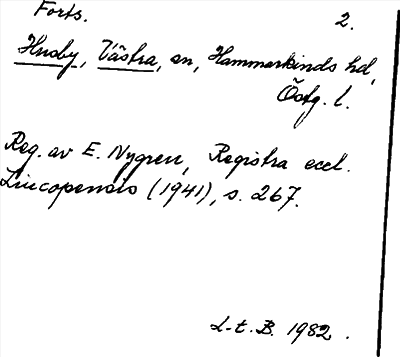 Forts. 2.
Husby, Västra, sn, Hammerkinds hd,
Östg. l.
Reg. av E. Nygren, Registra eccl.
Lincopensis (1941), s. 267.
L-t. B. 1982.